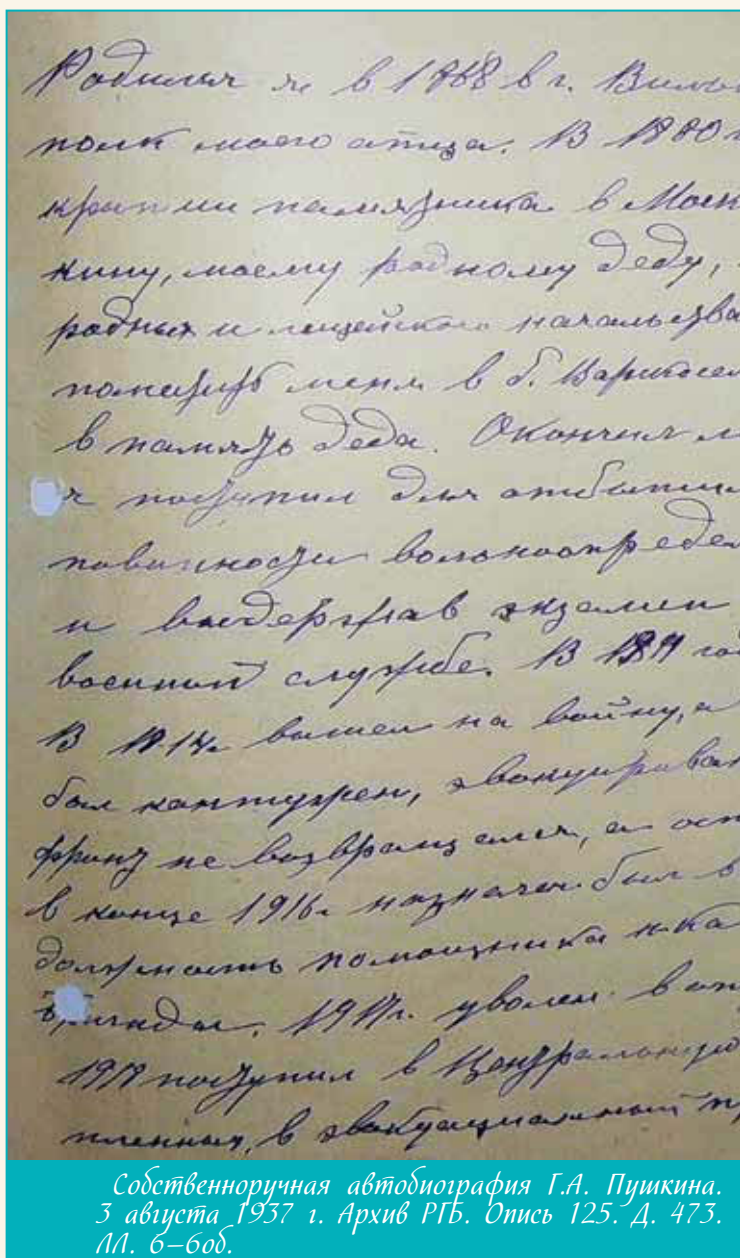 Родился я в 1868 в г. Вильн
полк моего отца. В 1880 г
крытии памятника в Моск
кину, моему родному деду,
родных и лицейского начальства
поместить меня в б. Царскосел
в память деда. Окончил л
я поступил для отбытия
повинности вольноопредел
и выдержав экзамен
военной службе. В год
В 1914г. вышел на войну, а
был контужен, эвакуирован
фронт не возвращался, а ост
в конце 1916г. назначен был в
должность помощника н-ка
бригады. 1917г. уволен в от
поступил в Центральную
пленных, в эвакуационный
Собственноручная автобиография Г.А. Пушкина.
3 августа 1937 г. Архив РГБ. Опись 125. Д. 473.
ЛЛ. 6–6об.